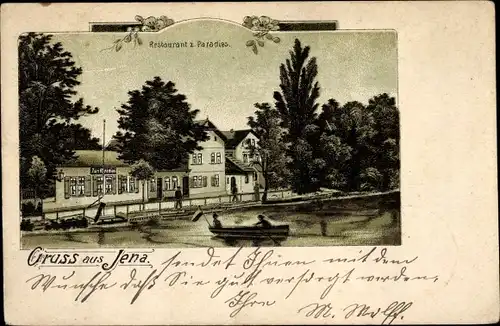 Restaurant z. Paradies.
Zum Paradies
Gruss aus Jena.
sendet Ihnen mit dem
Wunsche daß Sie gut versorgt werden,
Ihre M. Wolff.